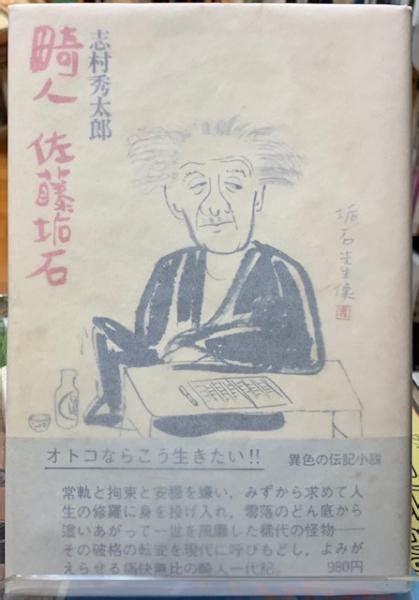 志村秀太郎
畸人 佐藤垢石
垢石先生像
オトコならこう生きたい!!
異色の伝記小説
常軌と拘束と安穏を嫌い，みずから求めて人
生の修羅に身を投げ入れ，零落のどん底から
這いあがって一世を風靡した稀代の怪物――
その破格の転変を現代に呼びもどし，よみが
えらせる痛快無比の畸人一代記。
980円